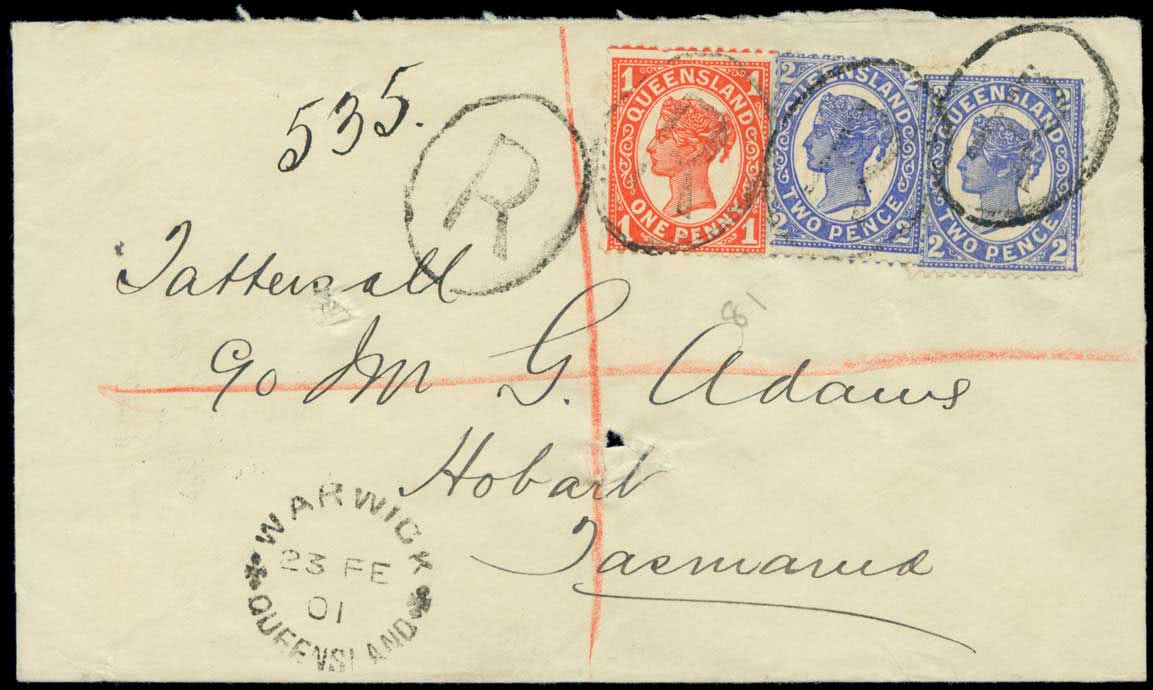 535.
R
1 1
QUEENSLAND
ONE PENNY
1 1
2
QUEENSLAND
TWO PENCE
2 2
QUEENSLAND
TWO PENCE
2 2
Tattersall
c/o Mr G. Adams
81
Hobart
Tasmania
WARWICK
23 FE
01
QUEENSLAND